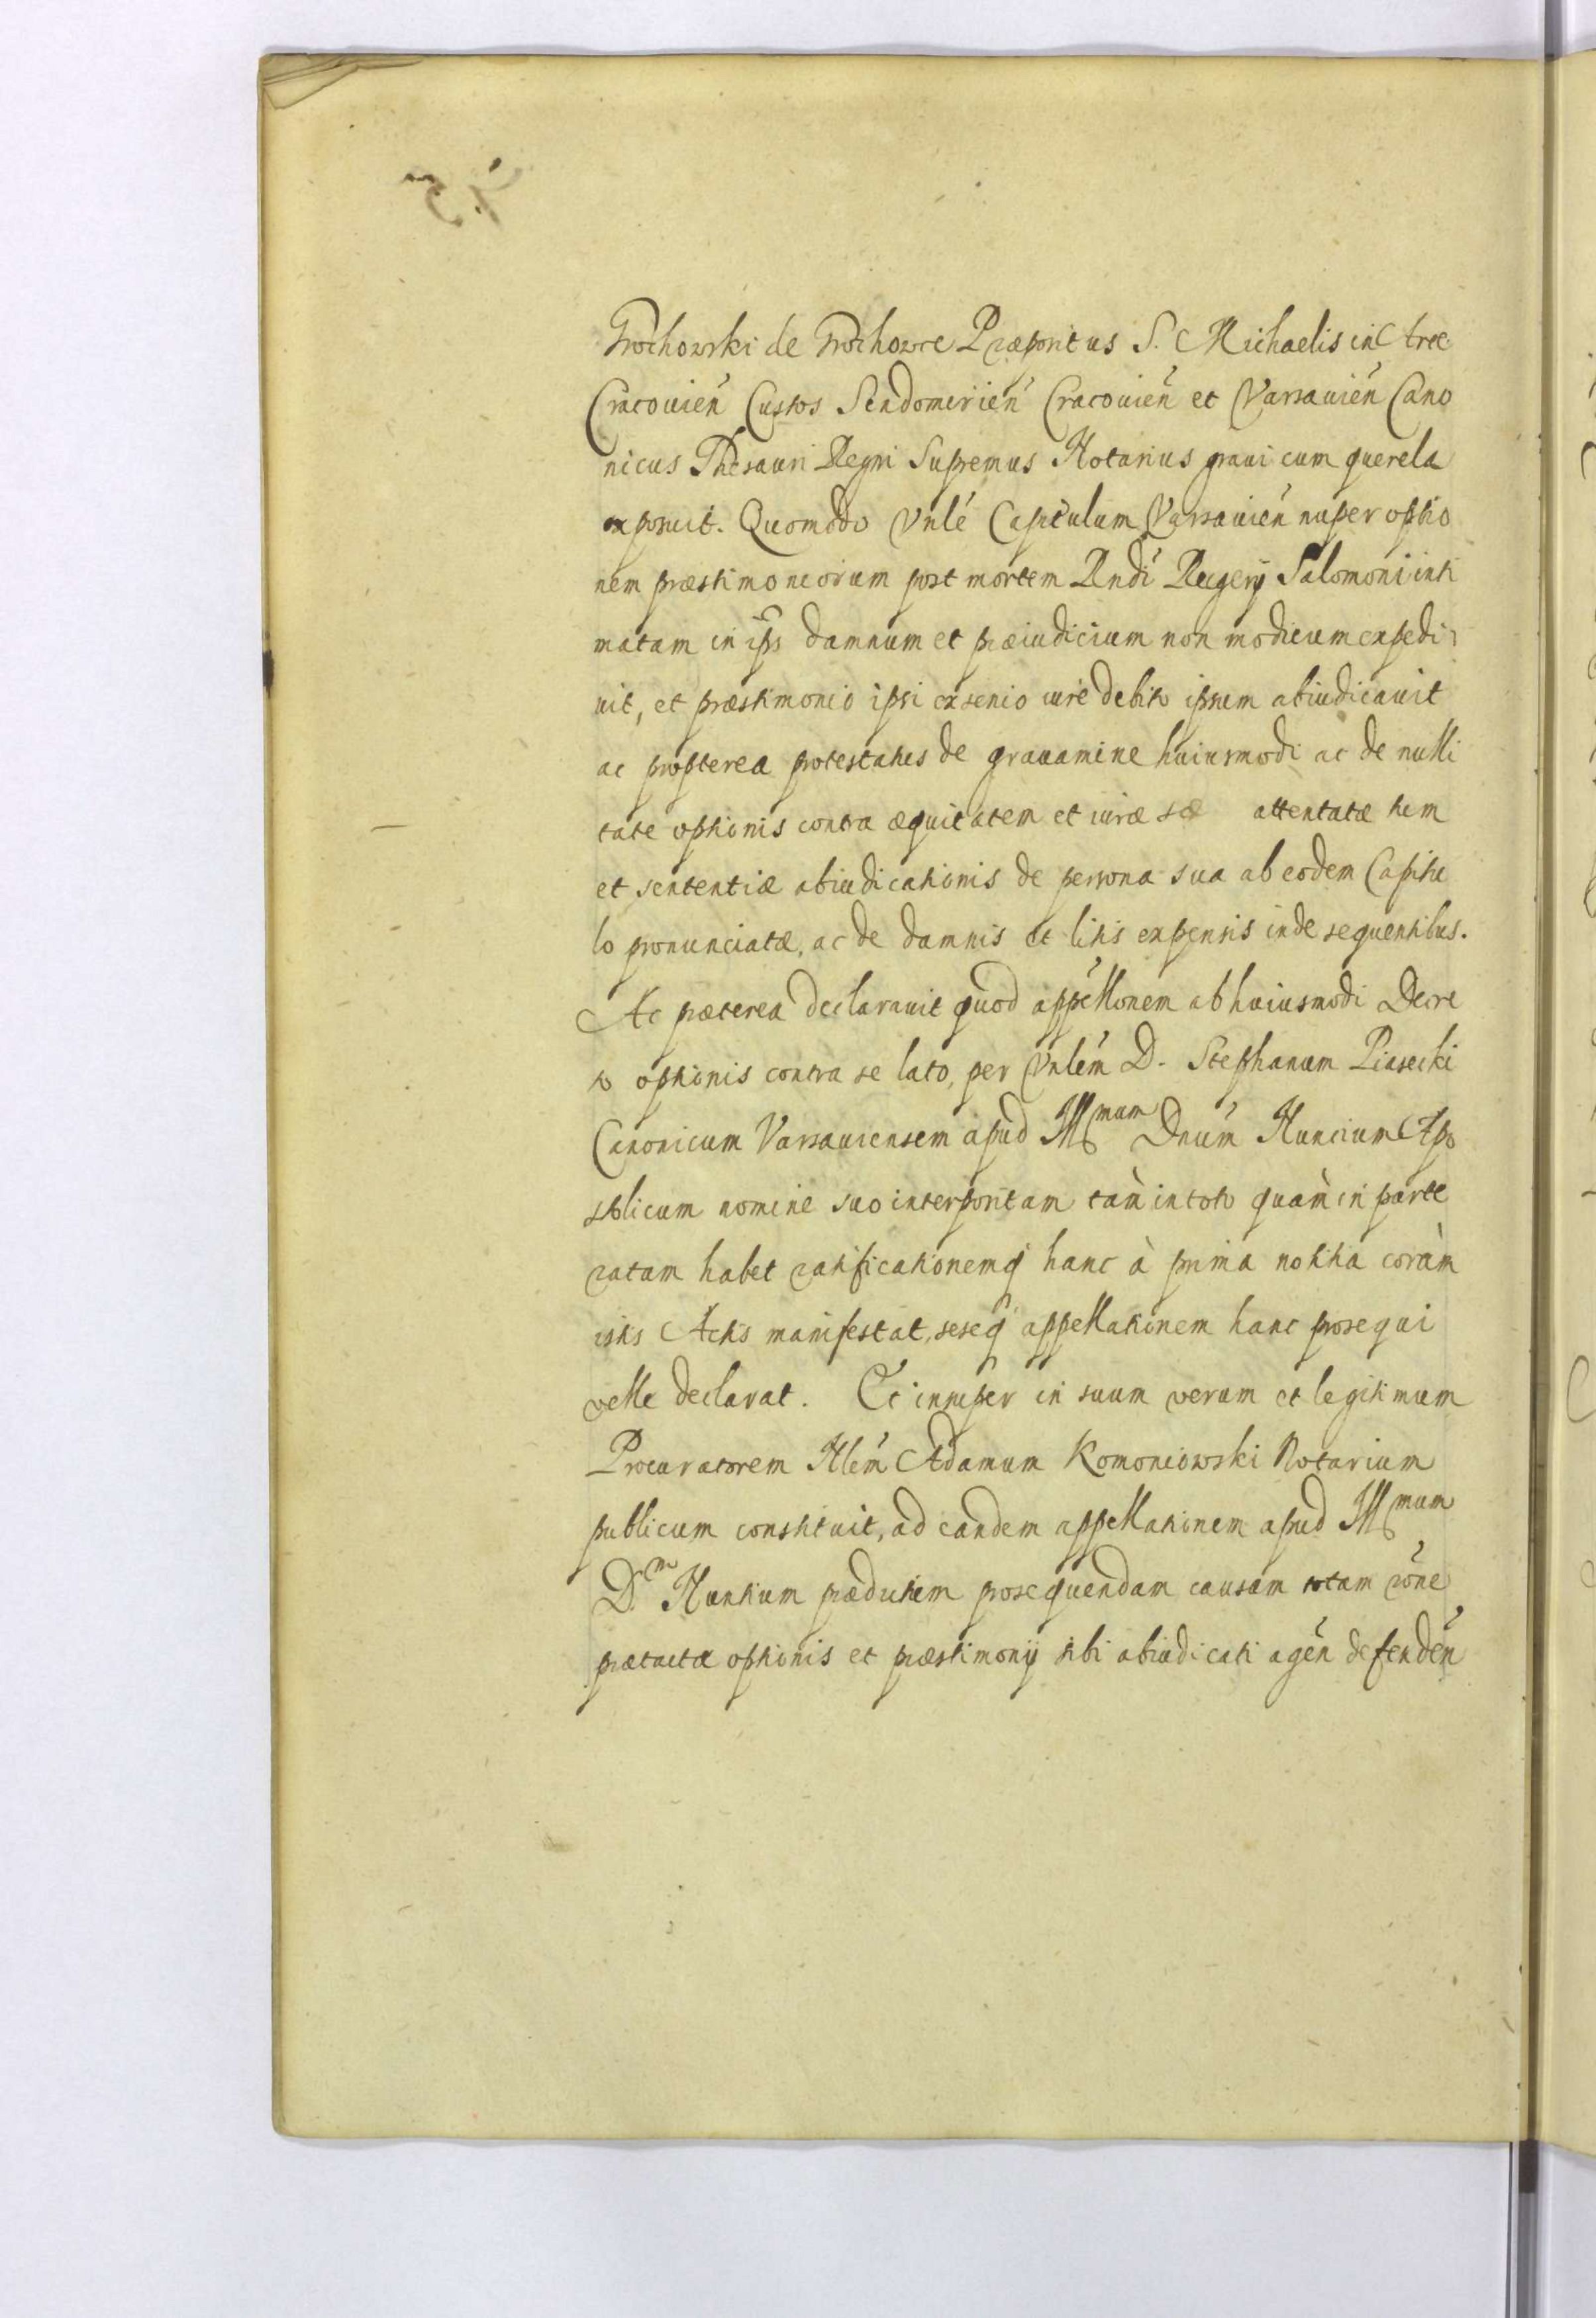 Grochowski de Grochowce Præpositus S. Michaelis in Arce
Cracouien̄ Custos Sendomirien̄ Cracouien̄ et Varsauien̄ Cano
nicus Thesauri Regni Supremus Notarius graui cum querela
exposuit. Quomodo Vnlé Capitulum Varsauien̄ nuper optio
nem præstimoniorum post mortem Rndi Rugerij Salomoni inti
matam in ips̄ damnum et præiudicium non modicum expedi
uit, et præstimonio ipsi ex senio iure debito ipsum abiudicauit
ac propterea protestatus de grauamine huiusmodi ac de nulli
tate optionis contra æquitatem et iura sæ attentatæ tum
et sententiæ abiudicationis de persona sua ab eodem Capitu
lo pronunciatæ, ac de damnis et litis expensis inde sequentibus.
Ac præterea declarauit quod appéllonem ab huiusmodi Decre
to optionis contra se lato, per Vnlém D. Stephanum Piasecki
Canonicum Varsauiensem apud Ill[mum] Dnum̄ Nuncium Apo
stolicum nomine suo interpositam tàm in toto quàm in parte
ratam habet ratificationemq́ hanc à prima notitia coràm
istis Actis manifestat, seseq́ appellationem hanc prosequi
velle declarat. Et insuper in suum verum et legitimum
Procuratorem Nlém Adamum Komoniowski Notarium
publicum constituit, ad eandem appellationem apud Ill[mum]
D.[m] Nuntium prædictum prosequendam causam totam rōne
prætactæ optionis et præstimonij sibi abiudicati agén defendén